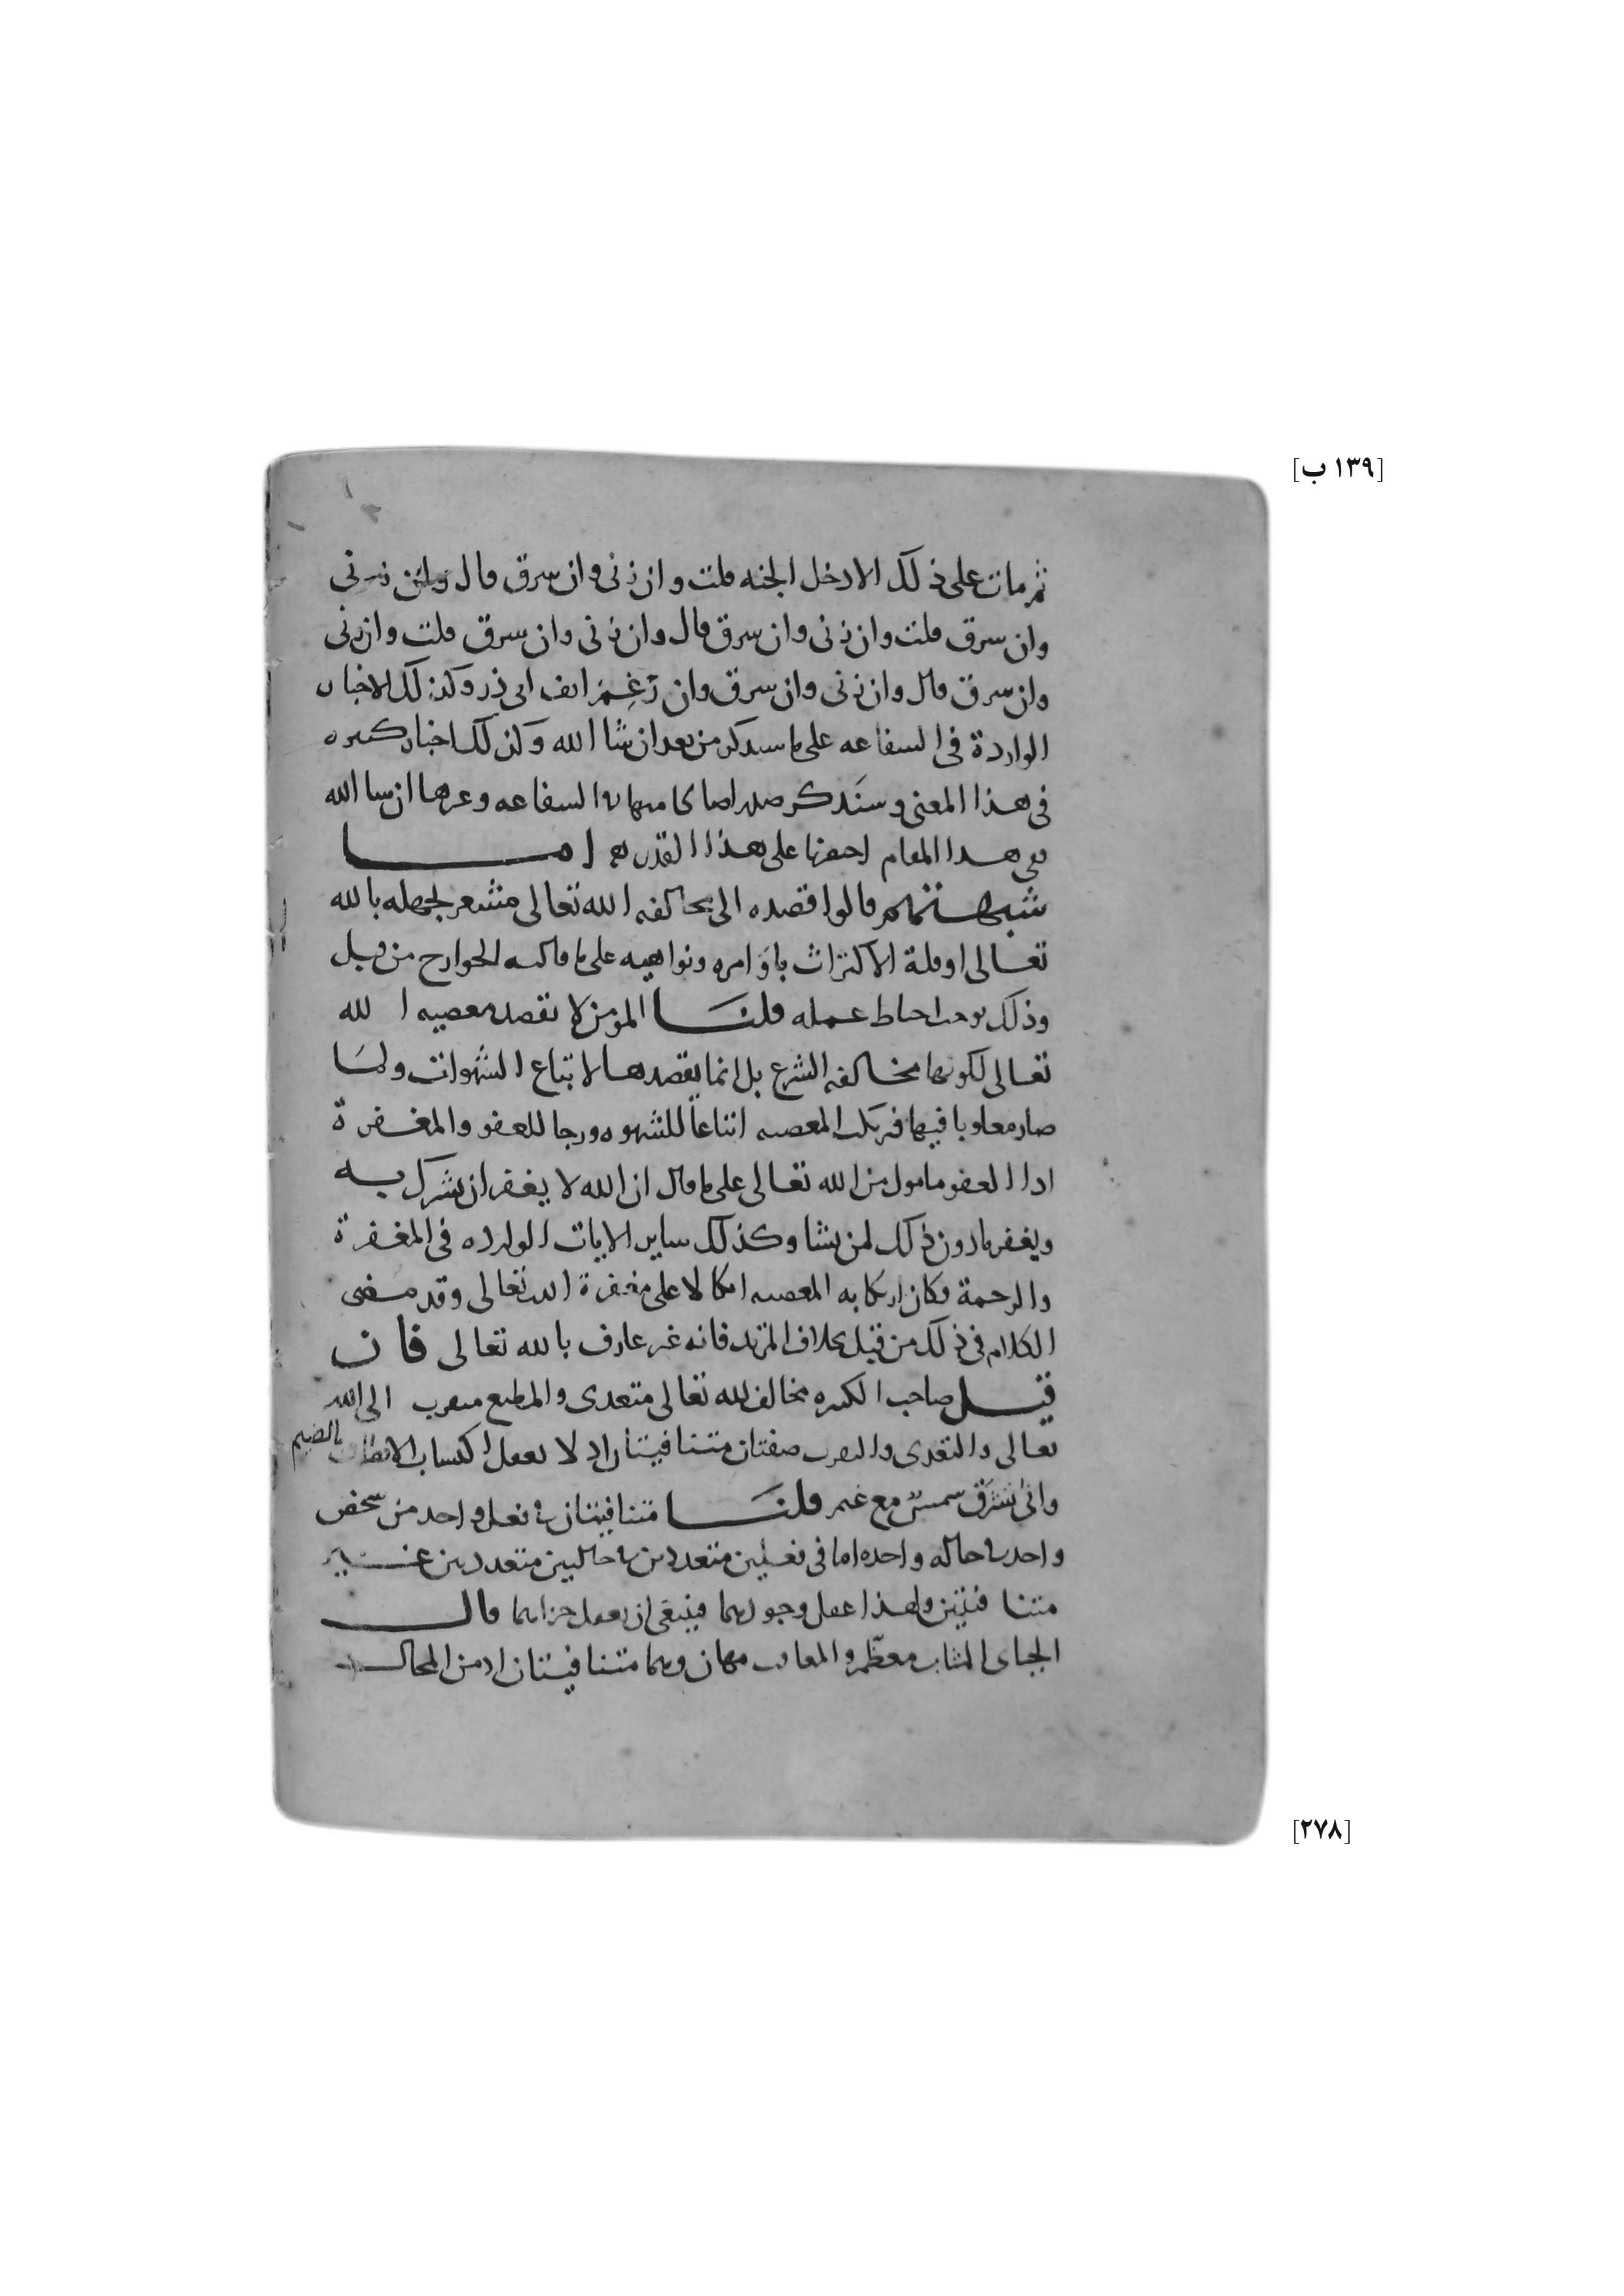 [١٣٩ ب]
ثم مات على ذلك الا دخل الجنه قلت وان زنى وان سرق قال وان زنى
وان سرق قلت وان زنى وان سرق قال وان زنى وان سرق قلت وان زنى
وان سرق قال وان زنى وان سرق وان رَغِمَ انف ابى ذر وكذلك الاخبار
الواردة فى الشفاعه على ما سيذكر من بعد ان شا الله وكذلك اخبار كثيره
فى هذا المعنى وسنَذكر صدرا صالحا منها فى الشفاعه وغيرها ان شا الله
ففى هذا المقام على هذا القدر امـــا
شبهتهم قالوا قصده الى مخالفه الله تعالى مشعر لجهله بالله
تعالى او قلة الاكتراث باوَامره ونواهيه على ما قبل
وذلك يوجب احباط عمله قلنـــا المومن لا يقصد معصيه الله
تعالى لكونها مخالفه الشرع بل انما يقصدها لاتباع الشهوات ولمَا
صار فيها المعصيه اتباعاً للشهوه ورجا للعفو والمغفرة
اذ العفو مامول من الله تعالى على ما قال ان الله لا يغفر ان يشرك به
ويغفر ما دون ذلك لمن يشا وكذلك ساير الايات الوارده فى المغفرة
والرحمة فكان ارتكابه المعصيه اتكالا على مغفرة الله تعالى وقد مضى
الكلام فى ذلك من قبل بخلاف المرتد فانه غير عارف بالله تعالى فان
قيـل صاحب الكبيره مخالف لله تعالى متعدى والمطيع متقرب الى الله
تعالى والتعدى والتقرب صفتان متنافيتان اذ لا يعقل اكتساب
وانى تشرق شمس مع غيم قلنـــا متنافيتان فى فعل واحد من شخص
واحد فى حاله واحده اما فى فعلين متعددين فى حالين متعددين غـير
متنافيتين ولهذا عقل وجودهما فينبغى ان يعقل جزاهما قال
الجباى المثاب معظّم والمعاقب مهان وهما متنافيتان اذ من المحال
[٢٧٨]